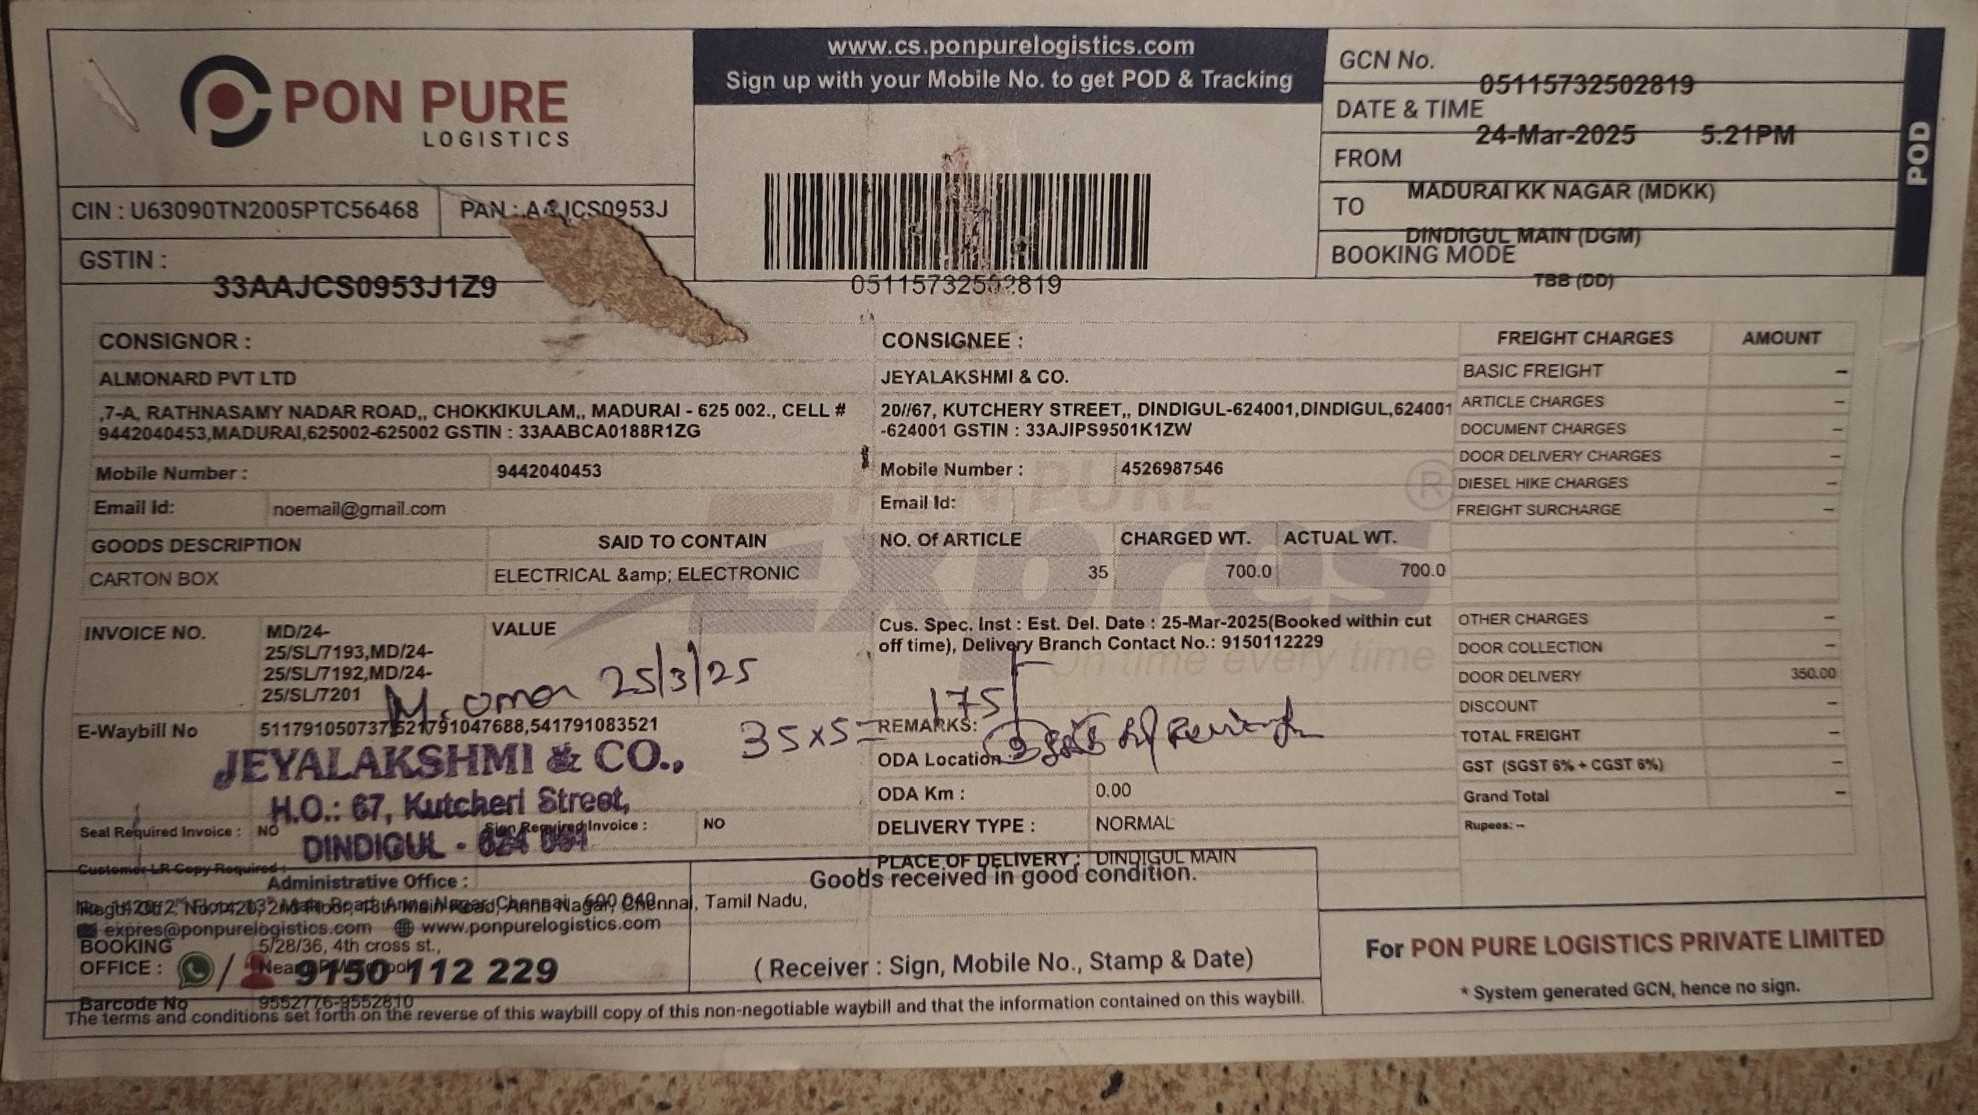 PON PURE
LOGISTICS
www.cs.ponpurelogistics.com
Sign up with your Mobile No. to get POD & Tracking
GCN No.
05115732502819
DATE & TIME
24-Mar-2025 5.21PM
FROM
MADURAI KK NAGAR (MDKK)
TO
DINDIGUL MAIN (DGM)
BOOKING MODE
TBB (DD)
POD
CIN : U63090TN2005PTC56468
PAN : AAJCS0953J
GSTIN :
33AAJCS0953J1Z9
05115732502819
CONSIGNOR :
ALMONARD PVT LTD
,7-A, RATHNASAMY NADAR ROAD,, CHOKKIKULAM,, MADURAI - 625 002., CELL #
9442040453,MADURAI,625002-625002 GSTIN : 33AABCA0188R1ZG
Mobile Number : 9442040453
Email Id: noemail@gmail.com
CONSIGNEE :
JEYALAKSHMI & CO.
20//67, KUTCHERY STREET,, DINDIGUL-624001,DINDIGUL,624001
-624001 GSTIN : 33AJIPS9501K1ZW
Mobile Number : 4526987546
Email Id:
PON PURE
Expres ®
On time every time
GOODS DESCRIPTION SAID TO CONTAIN NO. Of ARTICLE CHARGED WT. ACTUAL WT.
CARTON BOX ELECTRICAL &amp; ELECTRONIC 35 700.0 700.0
INVOICE NO. MD/24-
25/SL/7193,MD/24-
25/SL/7192,MD/24-
25/SL/7201
VALUE
Cus. Spec. Inst : Est. Del. Date : 25-Mar-2025(Booked within cut
off time), Delivery Branch Contact No.: 9150112229
25/3/25
E-Waybill No 511791050737,521791047688,541791083521
35x5= 175
REMARKS:
JEYALAKSHMI & CO.,
H.O.: 67, Kutcheri Street,
DINDIGUL - 624 001
ODA Location
ODA Km : 0.00
Seal Required Invoice : NO Sign Required Invoice : NO
DELIVERY TYPE : NORMAL
Customer LR Copy Required :
PLACE OF DELIVERY : DINDIGUL MAIN
FREIGHT CHARGES AMOUNT
BASIC FREIGHT –
ARTICLE CHARGES –
DOCUMENT CHARGES –
DOOR DELIVERY CHARGES –
DIESEL HIKE CHARGES –
FREIGHT SURCHARGE –
OTHER CHARGES –
DOOR COLLECTION –
DOOR DELIVERY 350.00
DISCOUNT –
TOTAL FREIGHT –
GST (SGST 6% + CGST 6%) –
Grand Total –
Rupees: –
Administrative Office :
Chennai, Tamil Nadu,
expres@ponpurelogistics.com www.ponpurelogistics.com
BOOKING
OFFICE :
5/28/36, 4th cross st.,
9150 112 229
Barcode No 9552776-9552810
Goods received in good condition.
( Receiver : Sign, Mobile No., Stamp & Date)
For PON PURE LOGISTICS PRIVATE LIMITED
* System generated GCN, hence no sign.
The terms and conditions set forth on the reverse of this waybill copy of this non-negotiable waybill and that the information contained on this waybill.